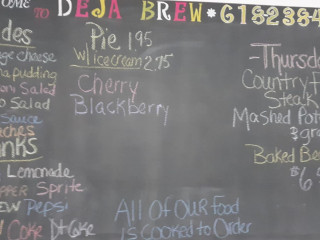 COME TO DEJA BREW * 6182384
des
ge cheese
na pudding
oni Salad
o Salad
Sauce
aches
nks
Lemonade
PPER Sprite
EW Pepsi
Coke Dt Coke
Pie 1.95
w/ice cream 2.75
Cherry
Blackberry
All Of OUR Food
is Cooked to Order
-Thursda
Country f
Steak
Mashed Pot
& gra
Baked Be
$6